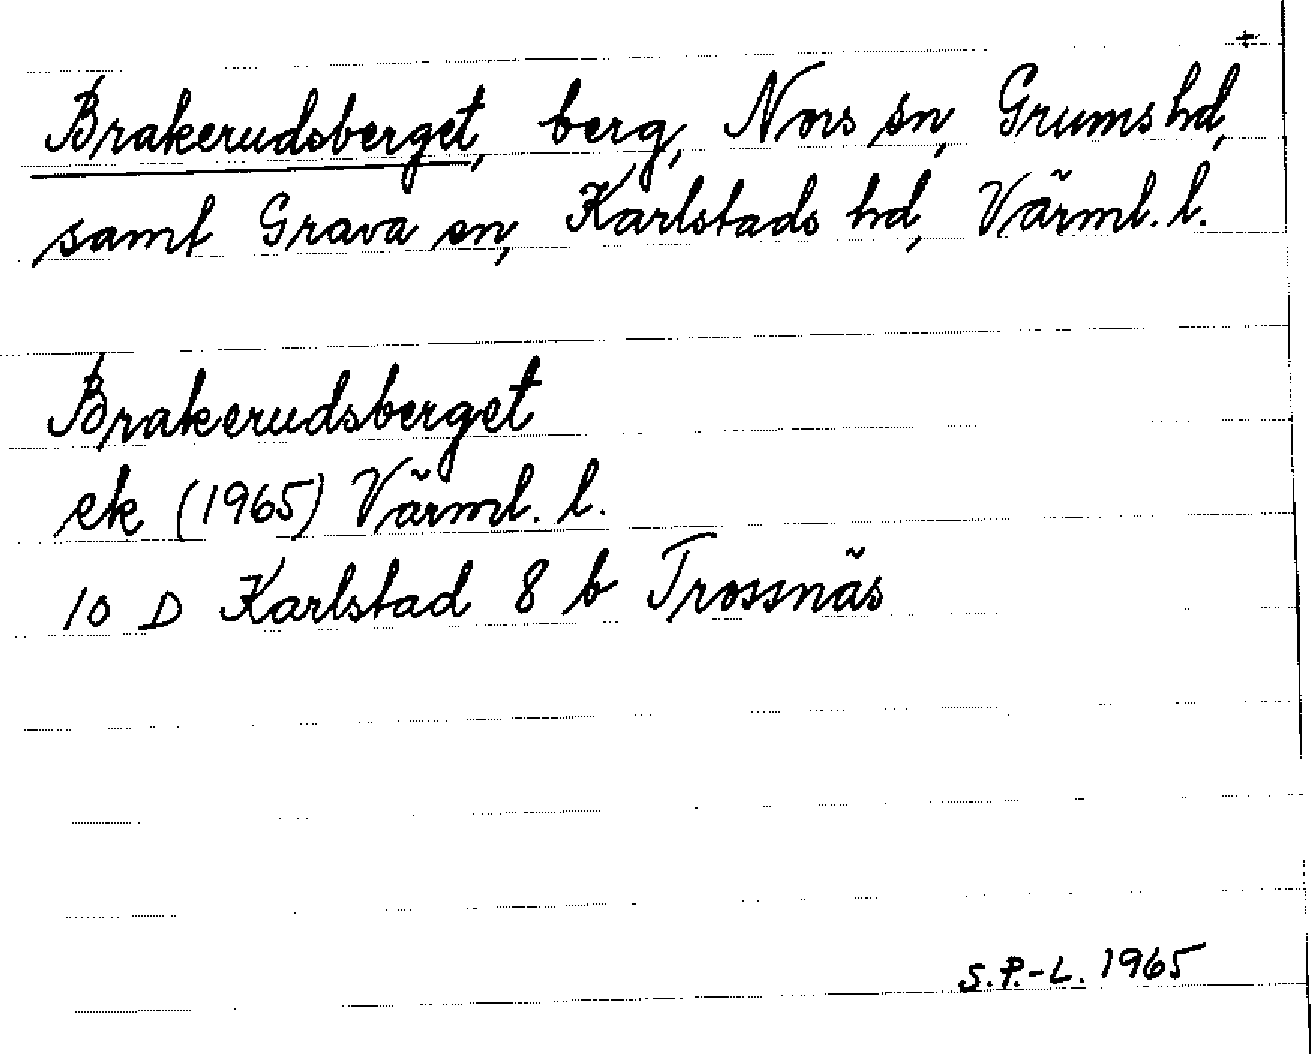 +
Brakerudsberget, berg, Nors sn, Grums hd,
samt Grava sn, Karlstads hd, Värml. l.
Brakerudsberget
ek (1965) Värml. l.
10 D Karlstad 8 b Trossnäs
S.P.-L. 1965